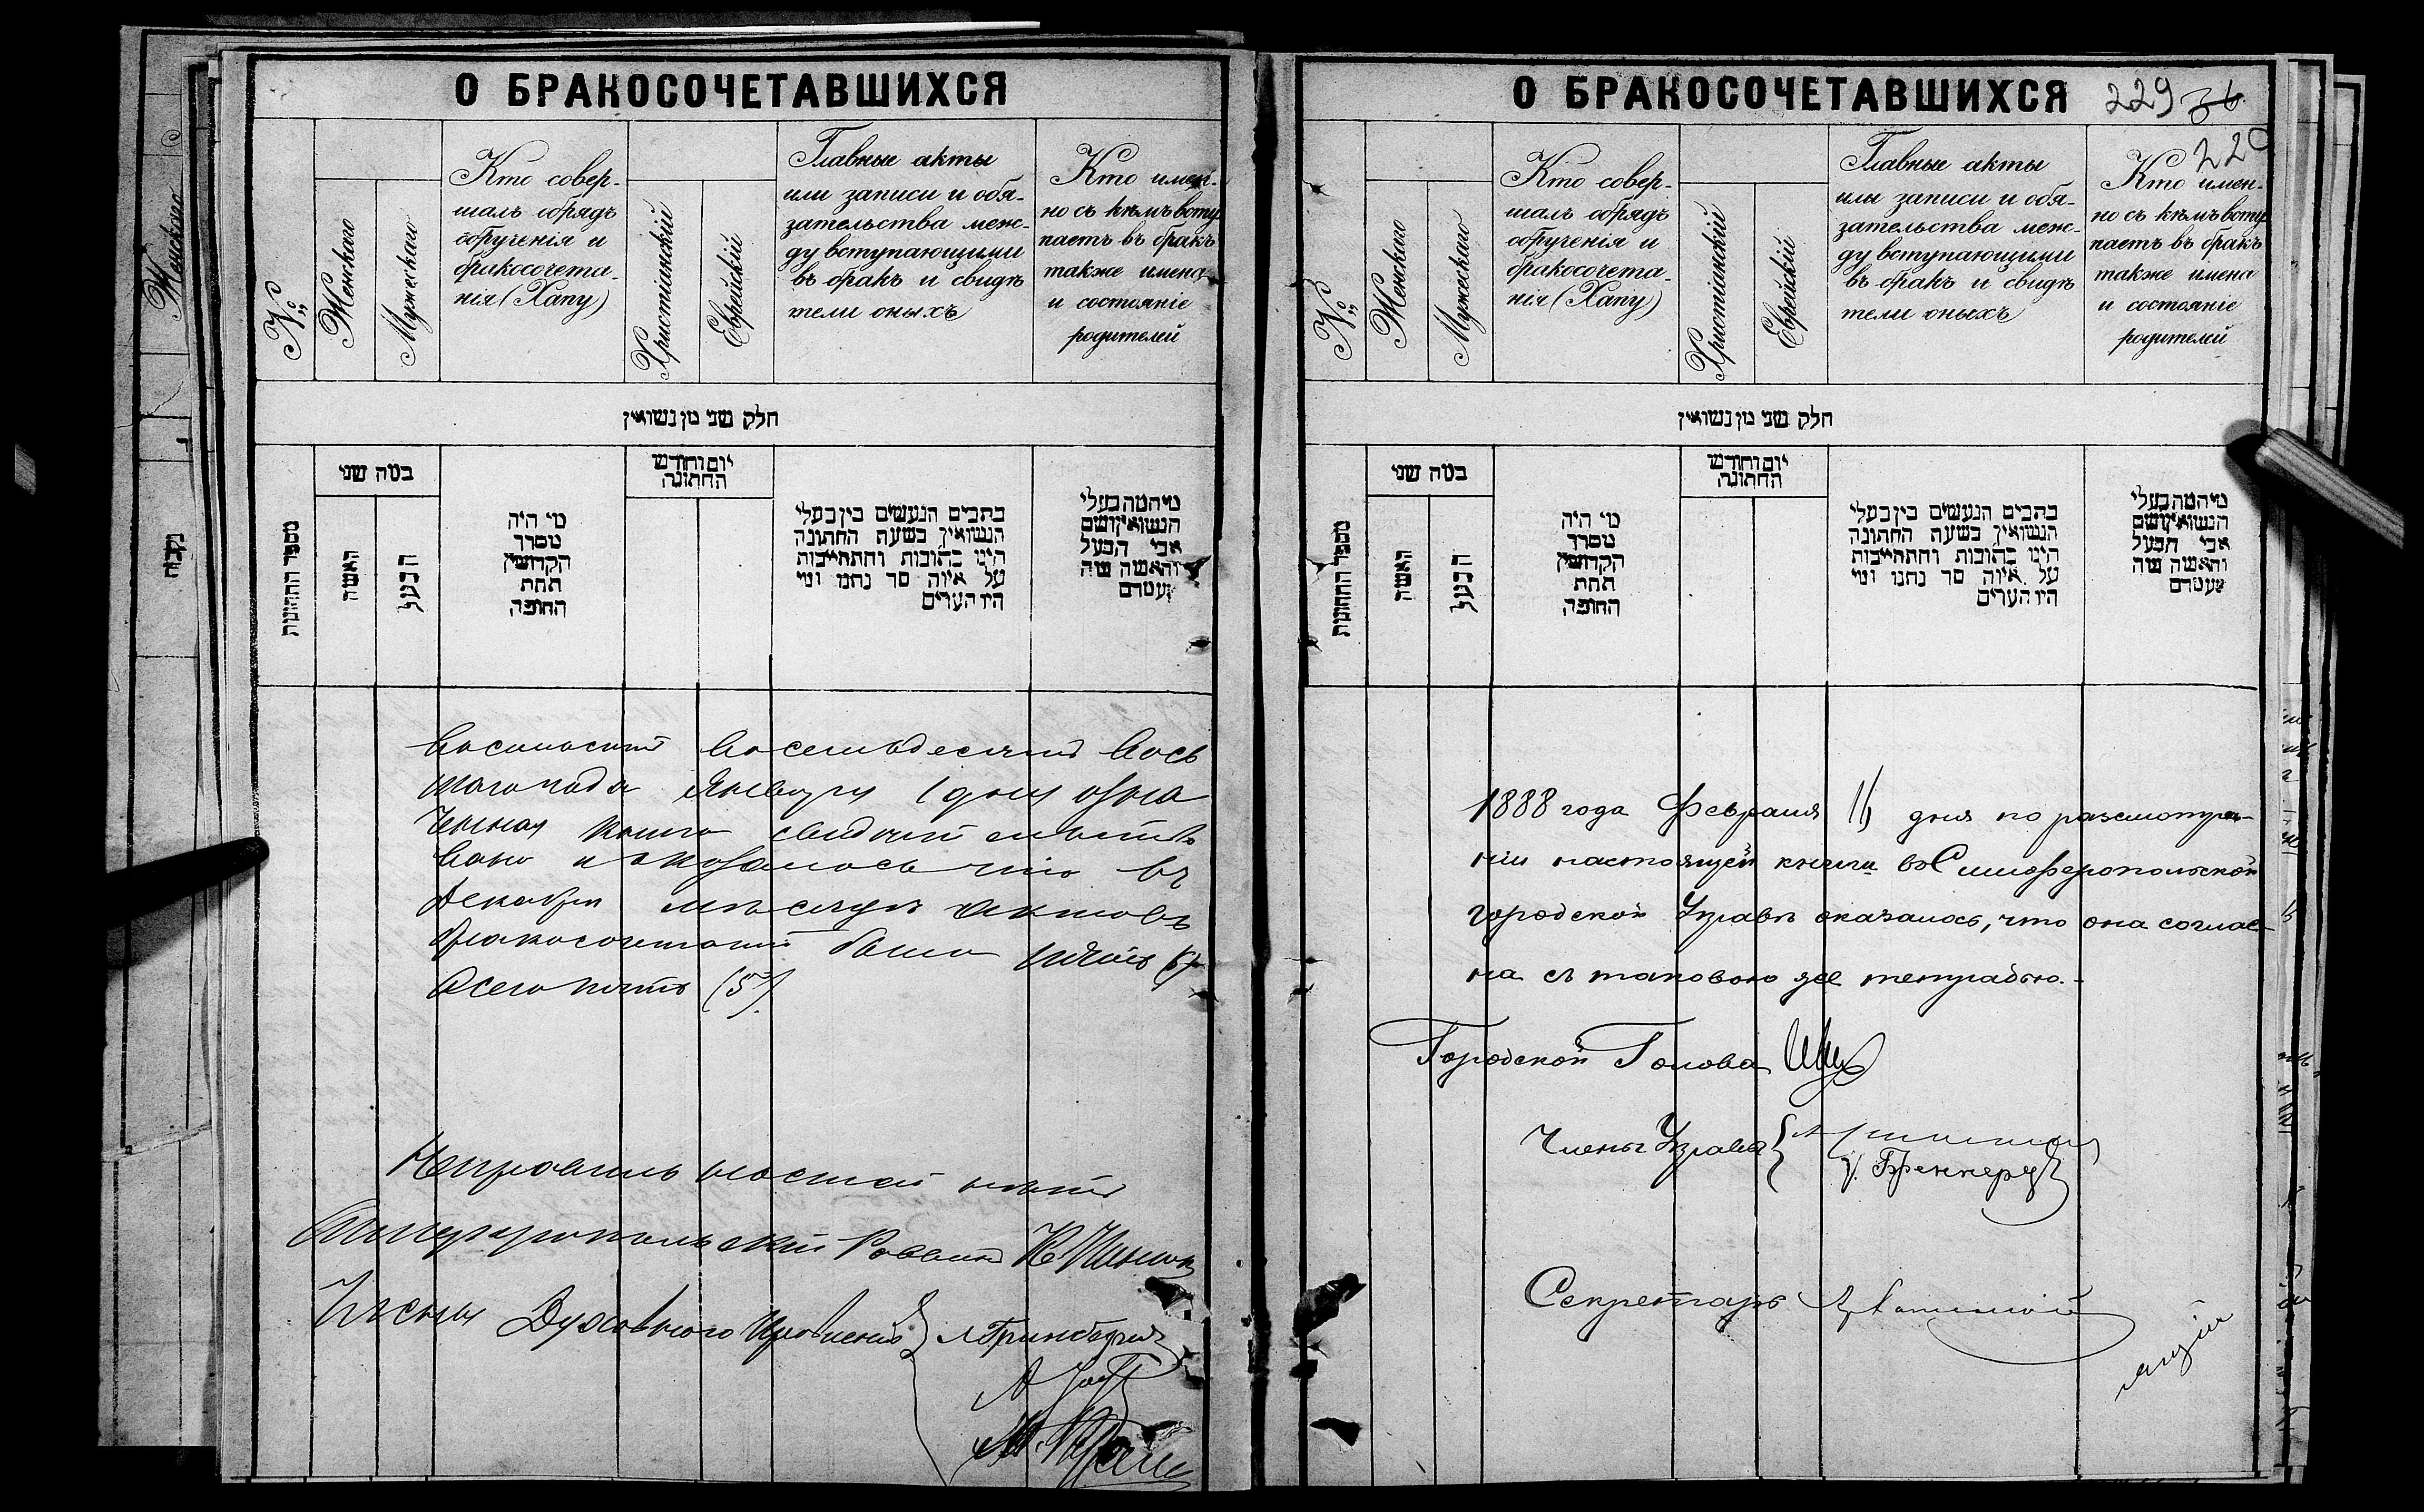 О БРАКОСОЧЕТАВШИХСЯ
№
Женскаго
Мужескаго
Кто совер-
шалъ обрядъ
обрученія и
бракосочета-
нія (Хапу)
Христіанскій
Еврейскій
Главные акты
или записи и обя-
зательства меж-
ду вступающими
въ бракъ и свидѣ
тели оныхъ
Кто имен-
но съ кѣмъ всту
паетъ въ бракъ
также имена
и состояніе
родителей
חלק שני מן נשואין
מספר החתונות
כמה שני
האשה
הבעל
מי היה
מסדר
הקדושין
תחת
החופה
יום וחודש
החתונה
כתבים הנעשים בין בעלי
הנשואין בשעת החתונה
היינו כתובות והתחייבות
על איזה סך נתנו ומי
היו העדים
מי המה בעלי
הנשואין ושם
אבי הבעל
והאשה ומה
מעמדם
восемьдесятъ вось
маго года Января 1 дня озна
ченная книга свидѣтельство
вано и оказалось что въ
Декабрѣ мѣсяцѣ актовъ
бракосочетаній было пять (5)
Всего пять (5).
Неправильностей нѣтъ
Симферопольскій Раввинъ
Члены Духовнаго Правленія } Гринбергъ
О БРАКОСОЧЕТАВШИХСЯ 229
№
Женскаго
Мужескаго
Кто совер-
шалъ обрядъ
обрученія и
бракосочета-
нія (Хапу)
Христіанскій
Еврейскій
Главные акты
или записи и обя-
зательства меж-
ду вступающими
въ бракъ и свидѣ
тели оныхъ
Кто имен-
но съ кѣмъ всту
паетъ въ бракъ
также имена
и состояніе
родителей
חלק שני מן נשואין
מספר החתונות
כמה שני
האשה
הבעל
מי היה
מסדר
הקדושין
תחת
החופה
יום וחודש
החתונה
כתבים הנעשים בין בעלי
הנשואין בשעת החתונה
היינו כתובות והתחייבות
על איזה סך נתנו ומי
היו העדים
מי המה בעלי
הנשואין ושם
אבי הבעל
והאשה ומה
מעמדם
1888 года Февраля дня по разсмотрѣ-
ніи настоящей книги въ Симферопольской
городской Управѣ оказалось, что она соглас-
на съ таковою же тетрадью.-
Городской Голова
Члены Управы {
Секретарь